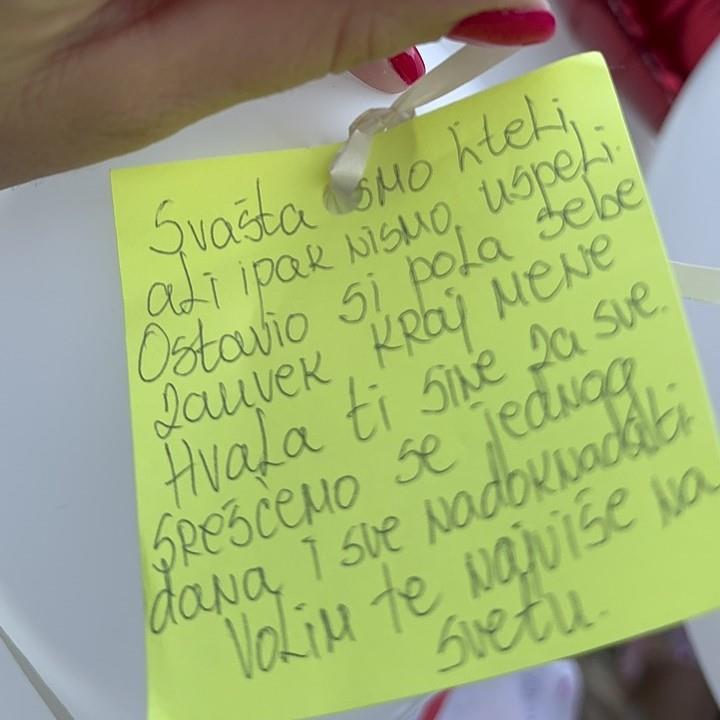 Svašta smo hteli,
ali ipak nismo uspeli.
Ostavio si pola sebe
zauvek kraj mene
Hvala ti sine za sve.
srešćemo se jednog
dana i sve nadoknaditi
Volim te najviše na
svetu.